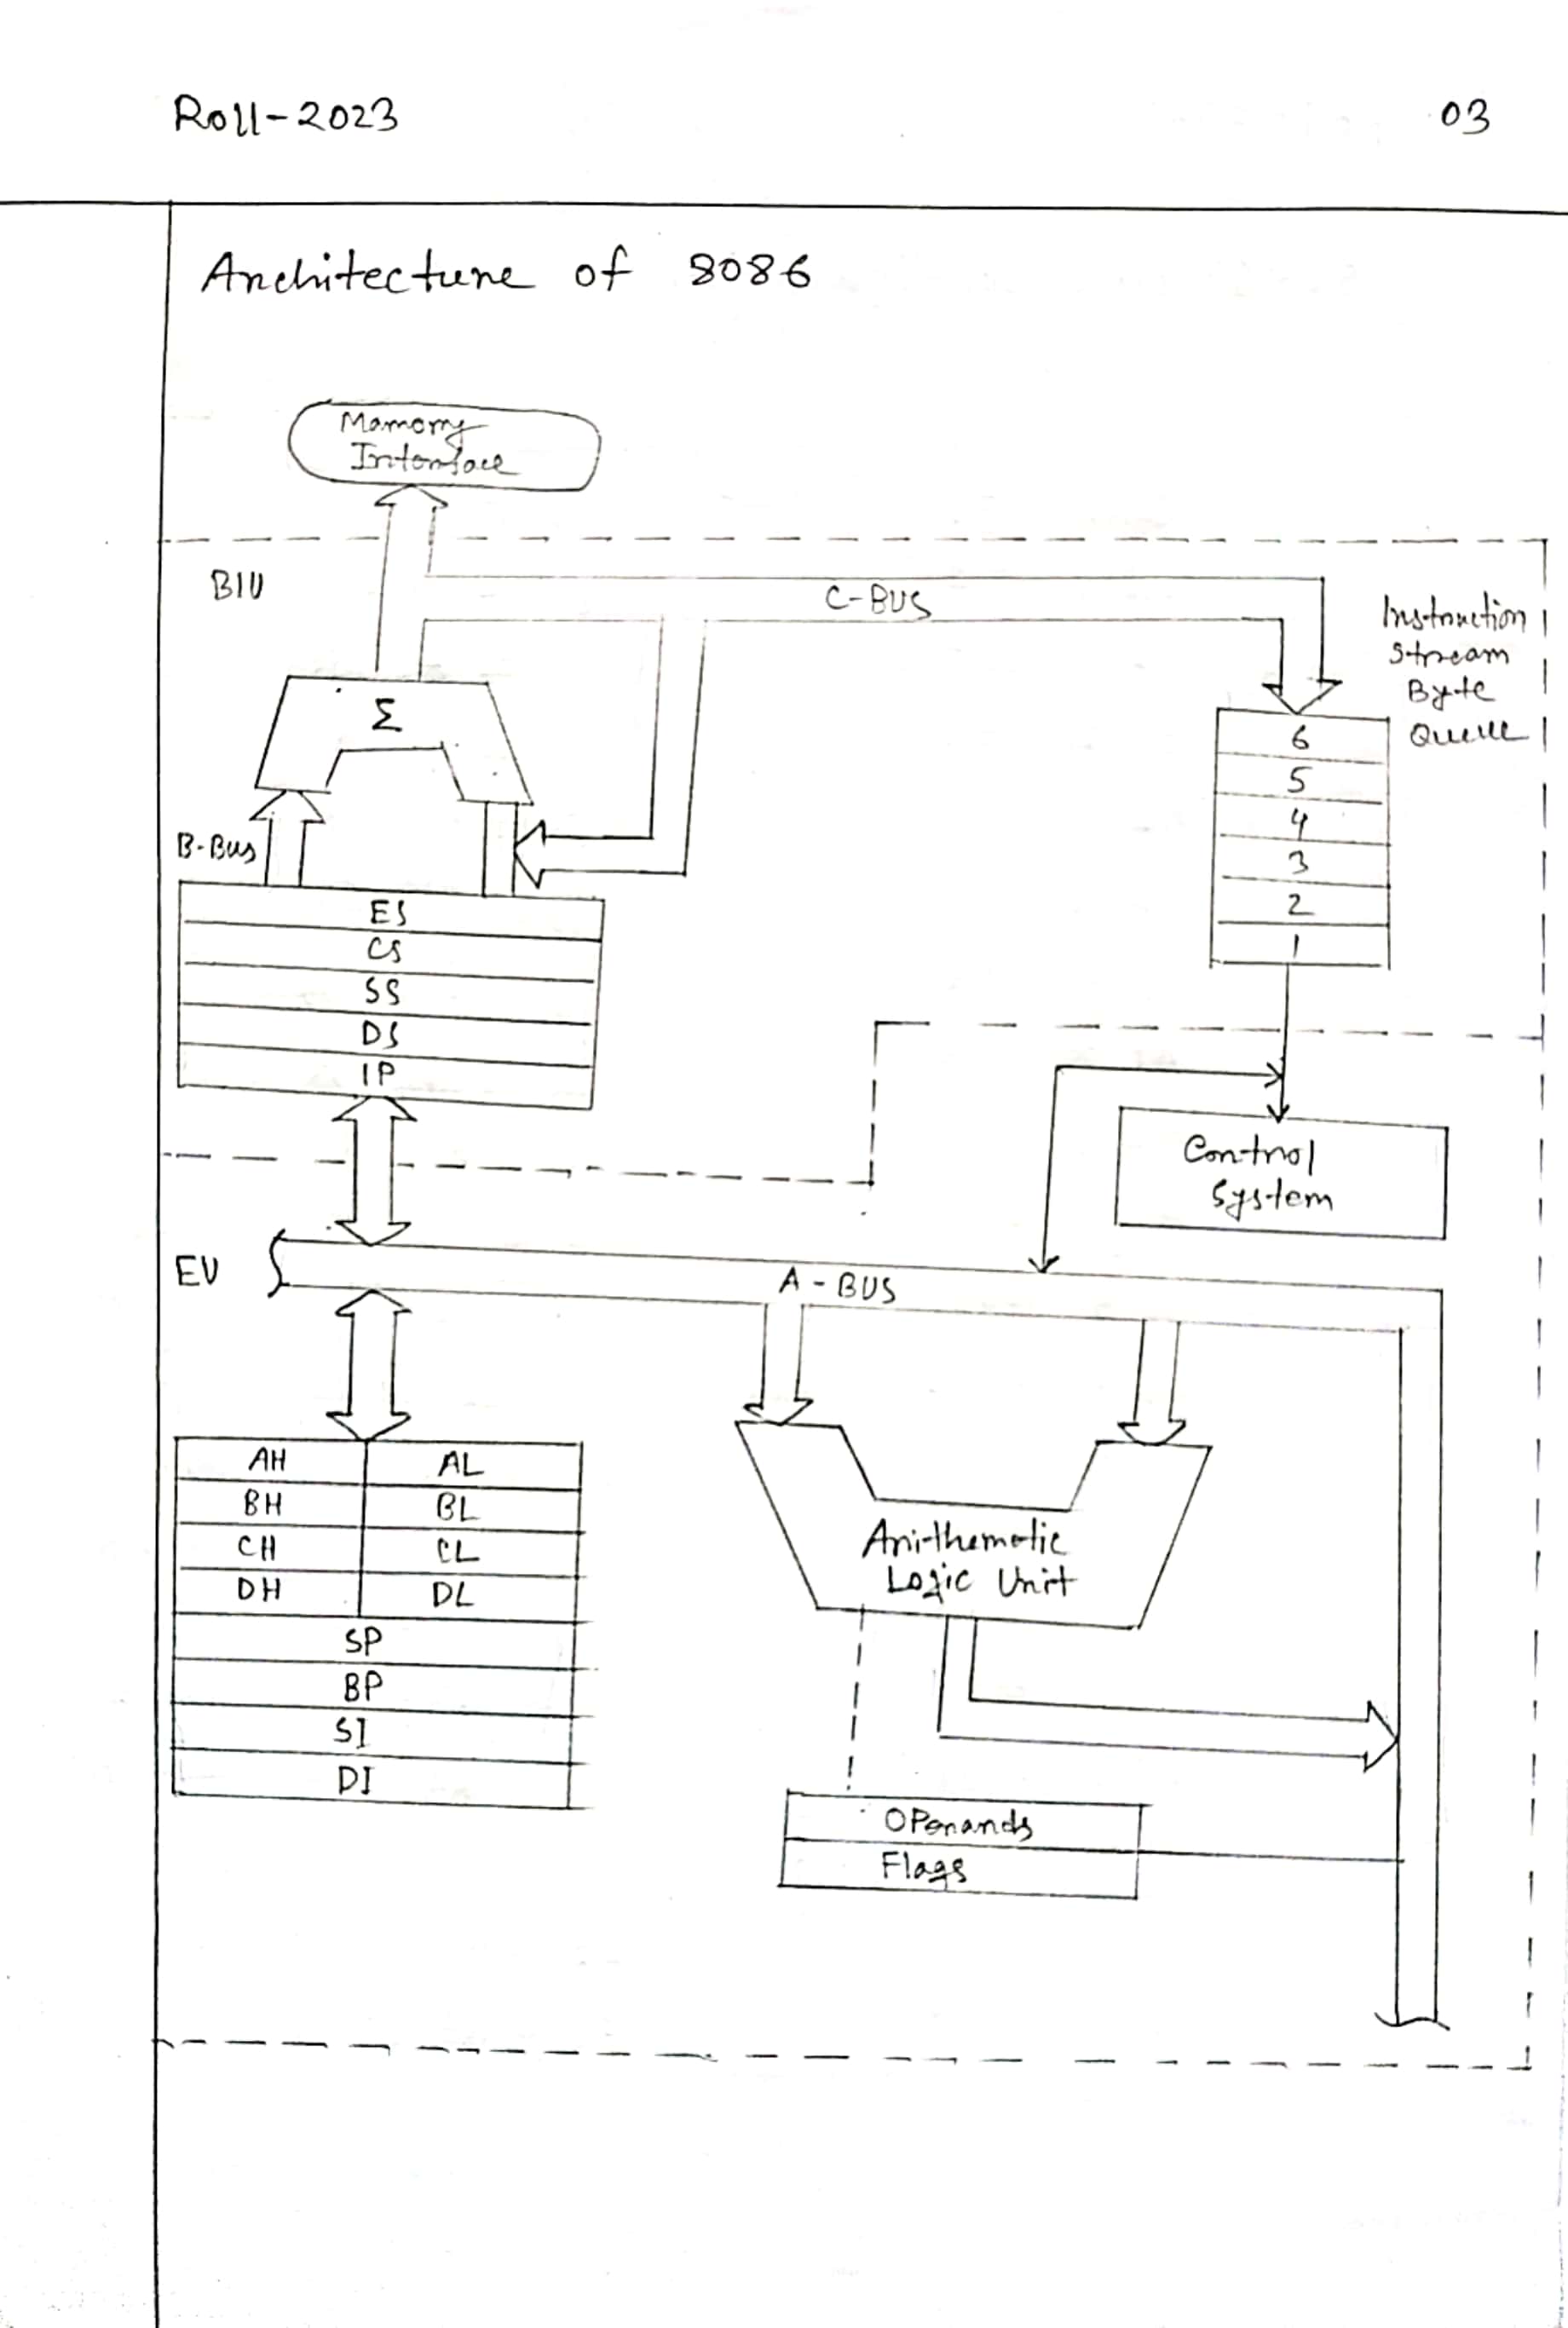 Roll-2023
03
Architecture of 8086
Mamory
Interface
BIU
C-BUS
Instruction
Stream
Byte
Queue
Σ
6
5
4
3
2
1
B-Bus
ES
CS
SS
DS
IP
Control
System
EU
A-BUS
AH AL
BH BL
CH CL
DH DL
SP
BP
SI
DI
Arithematic
Logic Unit
OPerands
Flags